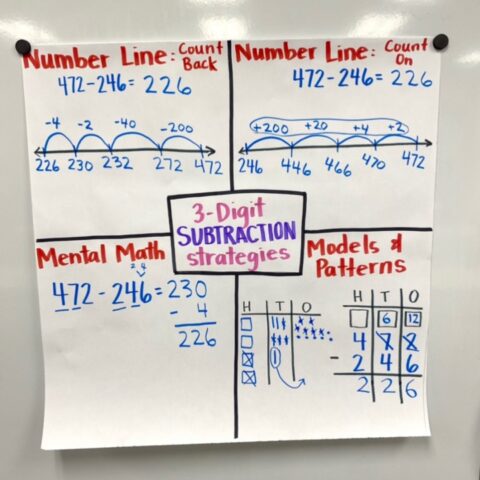 Number Line: Count Back
472-246=226
-4 -2 -40 -200
226 230 232 272 472
Number Line: Count On
472-246=226
+200 +20 +4 +2
246 446 466 470 472
3-Digit
SUBTRACTION
strategies
Mental Math
472-246=230
- 4
226
Models &
Patterns
H T O
H T O
6 12
4
- 2 4 6
2 2 6